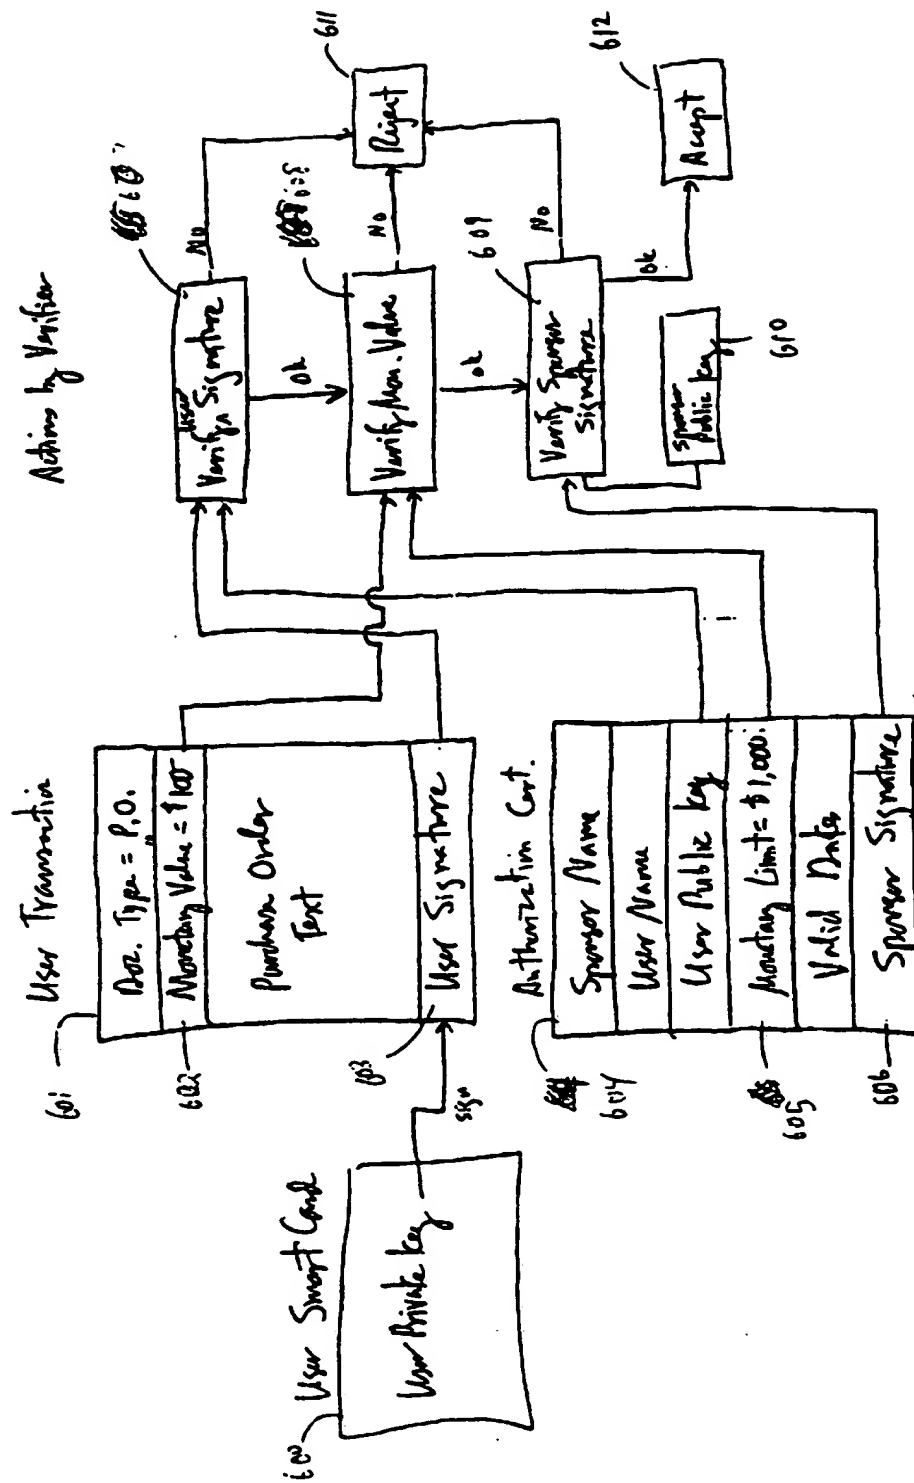 User Smart Card
600
User Private Key
sign
User Transaction
601
Doc. Type = P.O.
Monetary Value = $100
602
Purchase Order
Text
603
User Signature
Authorization Cert.
604
Sponsor Name
User Name
User Public Key
Monetary Limit = $1,000.
605
Valid Dates
606
Sponsor Signature
Actions by Verifier
User
Verify Signature
No
Ok
Verify Mon. Value
No
Ok
609
Verify Sponsor
Signature
No
Ok
Sponsor
Public Key
610
611
Reject
612
Accept